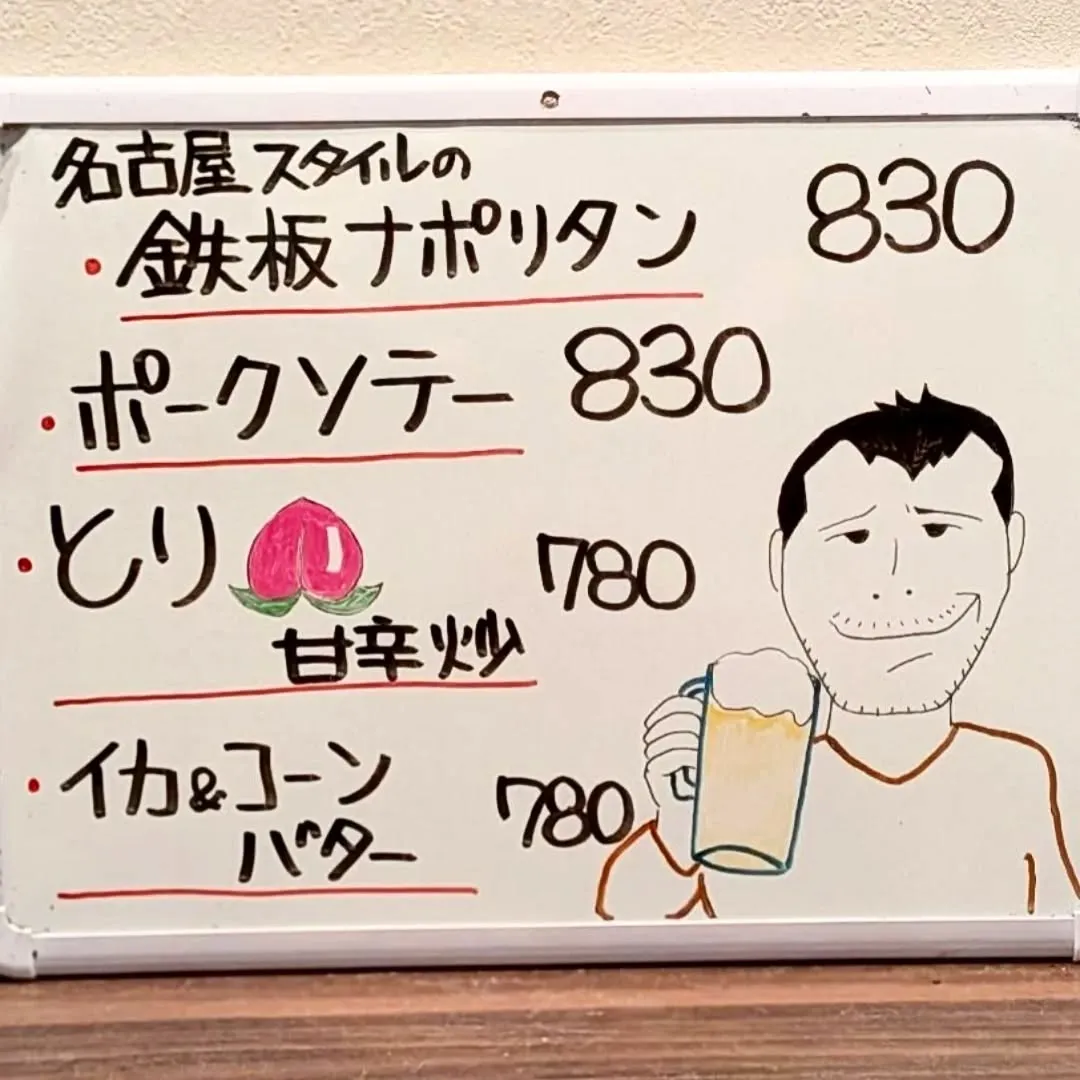 名古屋スタイルの
・鉄板ナポリタン 830
・ポークソテー 830
・とり 780
甘辛炒
・イカ&コーン 780
バター